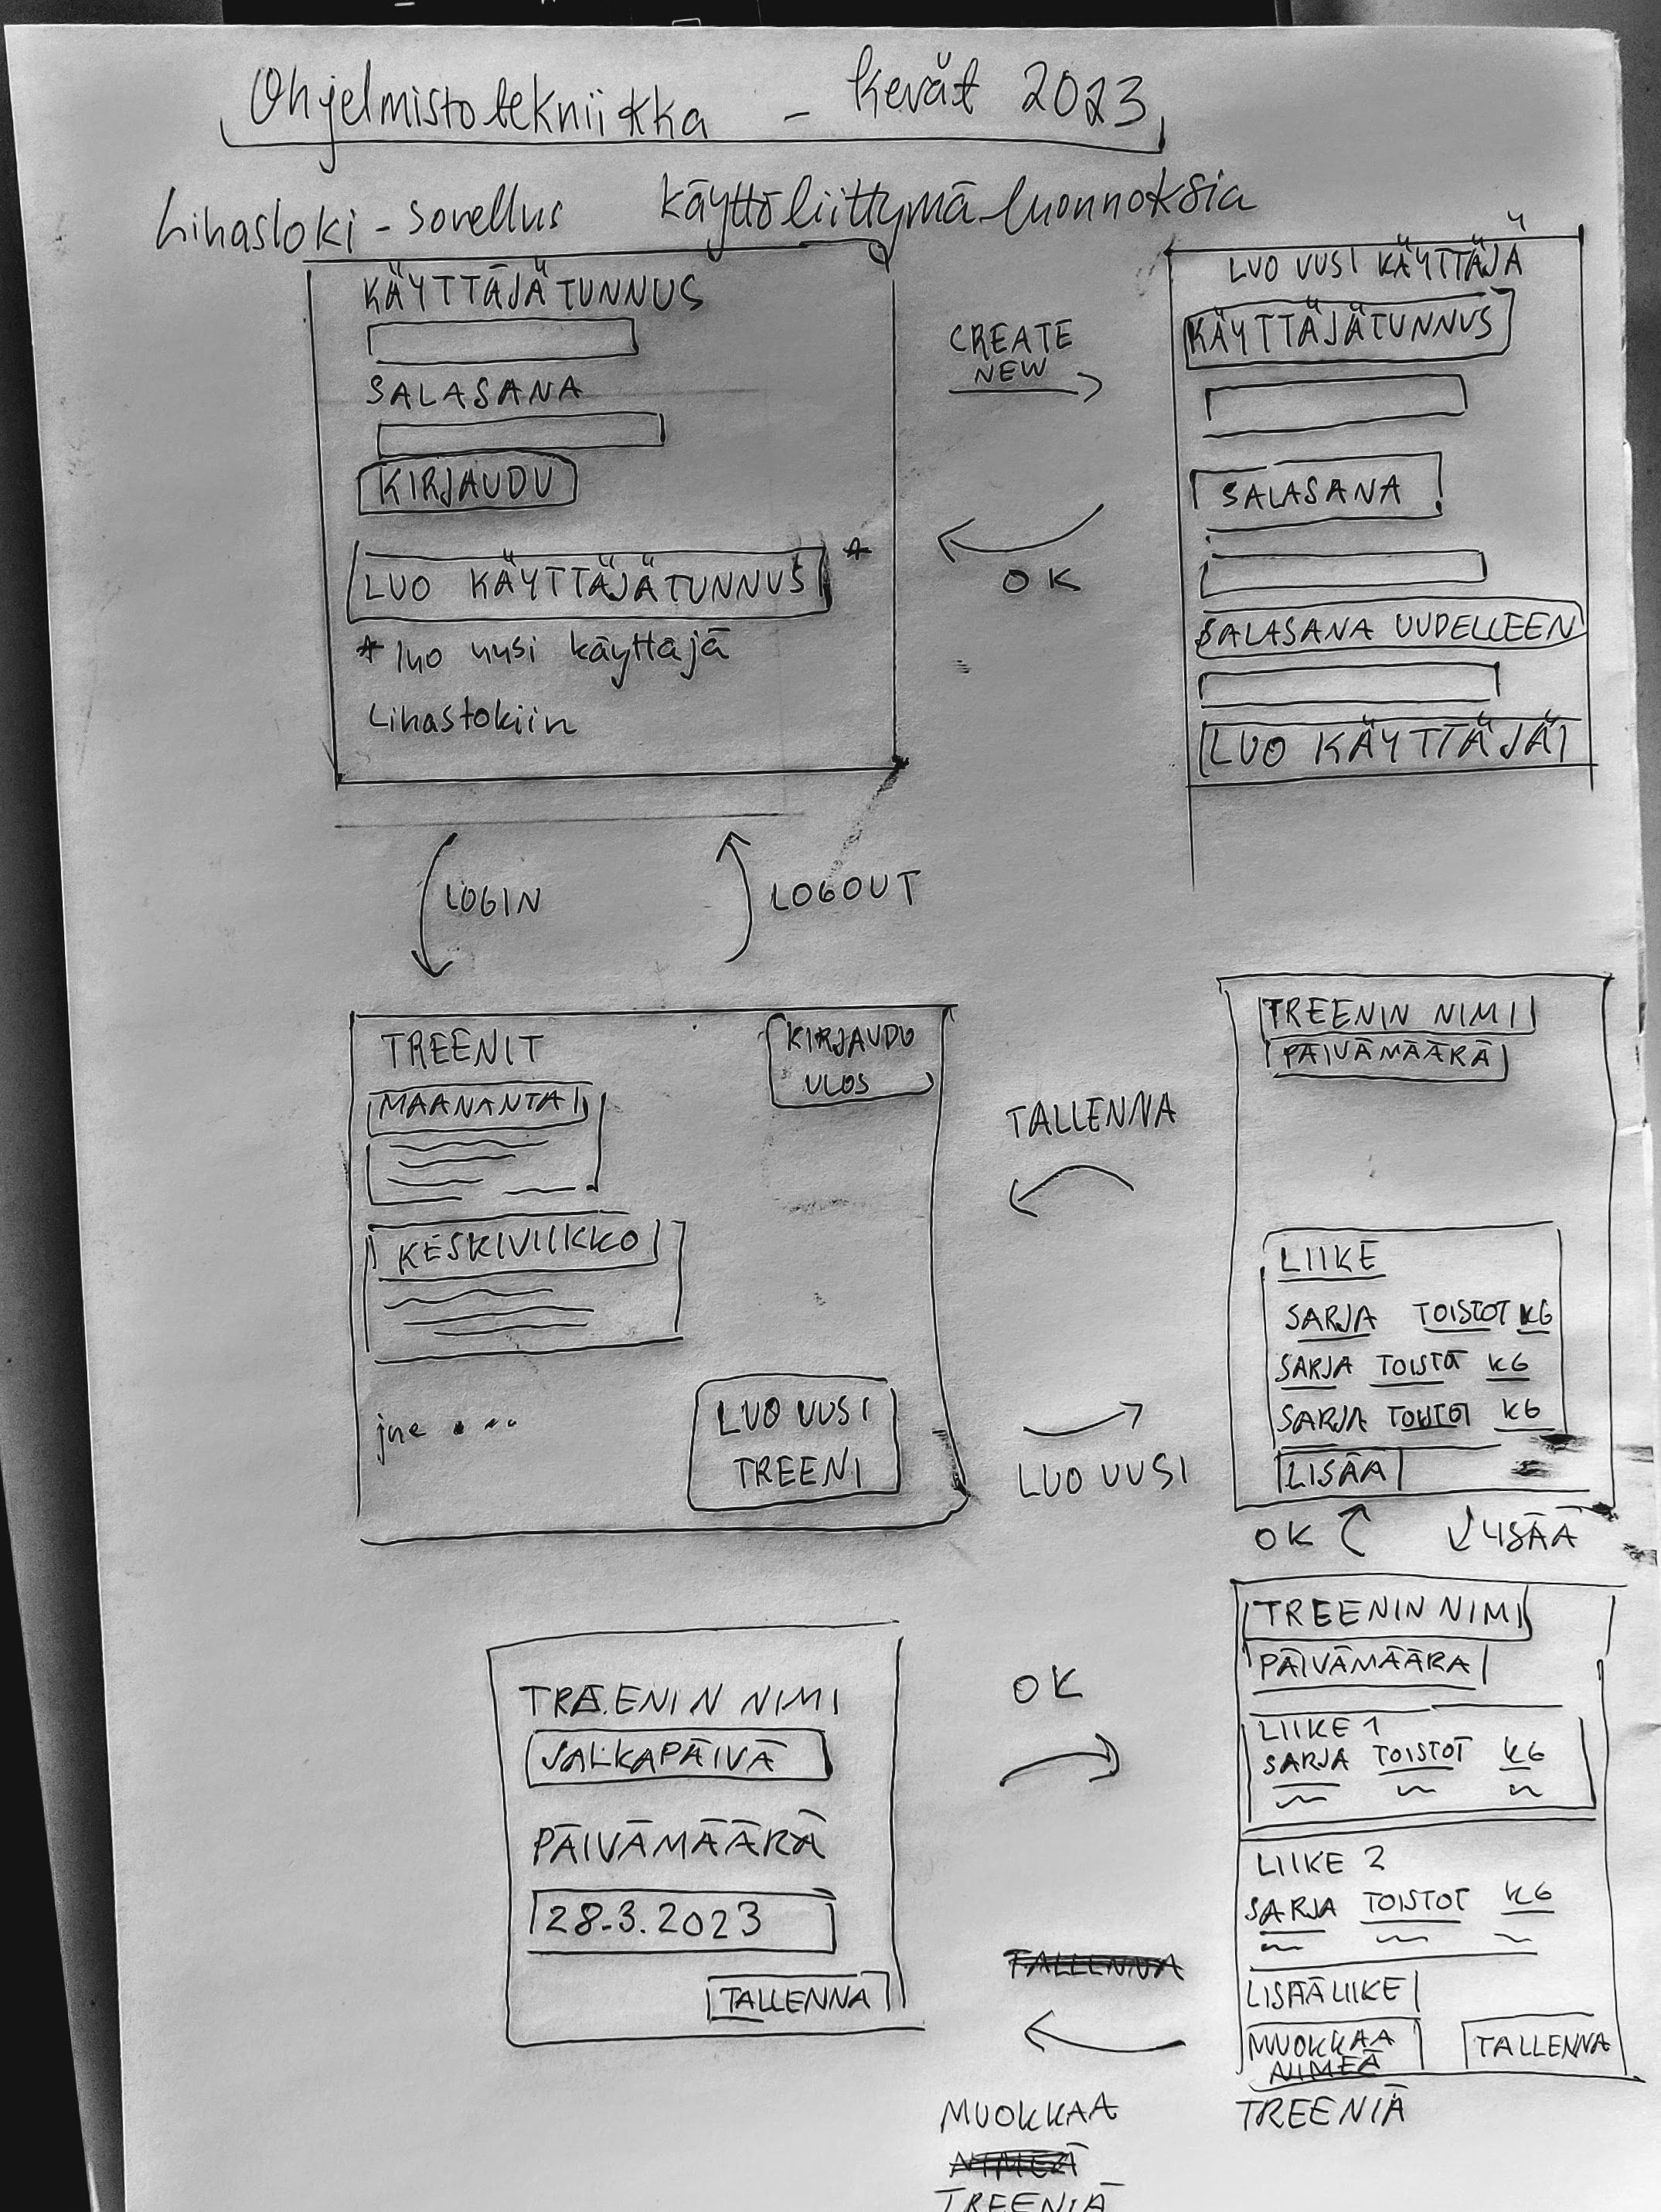 Ohjelmistotekniikka - Kevät 2023
Lihasloki-sovellus Käyttöliittymä-luonnoksia
KÄYTTÄJÄTUNNUS
SALASANA
KIRJAUDU
LUO KÄYTTÄJÄTUNNUS *
* luo uusi käyttäjä
Lihaslokiin
CREATE
NEW
OK
LUO UUSI KÄYTTÄJÄ
KÄYTTÄJÄTUNNUS
SALASANA
SALASANA UUDELLEEN
LUO KÄYTTÄJÄ
LOGIN
LOGOUT
TREENIT
KIRJAUDU
ULOS
MAANANTAI
KESKIVIIKKO
jne ...
LUO UUSI
TREENI
TALLENNA
LUO UUSI
TREENIN NIMI
PÄIVÄMÄÄRÄ
LIIKE
SARJA TOISTOT KG
SARJA TOISTOT KG
SARJA TOISTOT KG
LISÄÄ
OK
LISÄÄ
TREENIN NIMI
JALKAPÄIVÄ
PÄIVÄMÄÄRÄ
28.3.2023
TALLENNA
OK
TALLENNA
MUOKKAA
NIMEÄ
TREENIÄ
TREENIN NIMI
PÄIVÄMÄÄRÄ
LIIKE 1
SARJA TOISTOT KG
LIIKE 2
SARJA TOISTOT KG
LISÄÄ LIIKE
MUOKKAA
NIMEÄ
TALLENNA
TREENIÄ